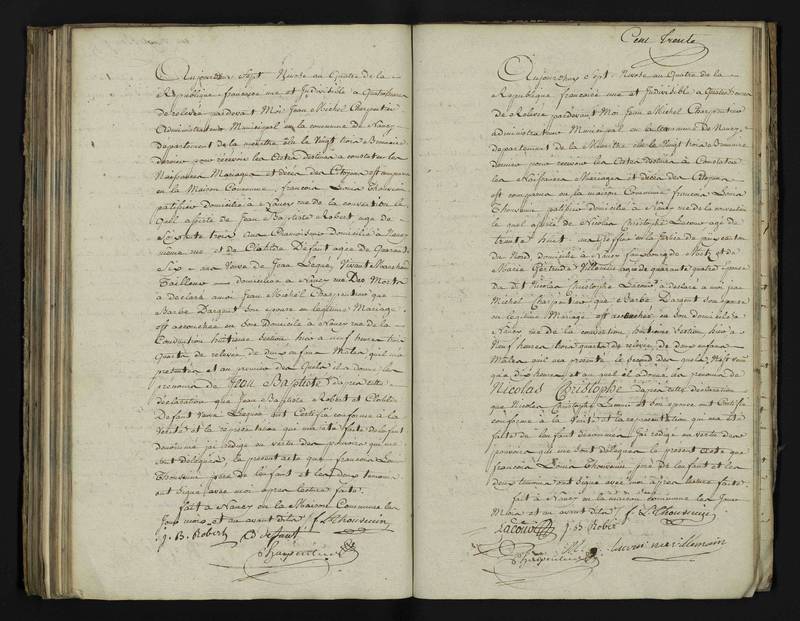 Aujourdhuy Sept Nivose an Quatre de la
République françoise une et Indivisible a Quatre heures
de relevée pardevant Moi Jean Michel Charpentier
Administrateur Municipal en la commune de Nancy
Departement de la meurthe élu le Vingt trois Brumaire
dernier pour recevoir les Actes destinés a constater les
Naissances Mariages et décès des Citoyens est comparu
en la Maison Commune françois Louis Thouvenin
patissier Domicilié a Nancy rue de la convention le
quel assisté de Jean Baptiste Robert age de
Soixante trois ans Domicilié a Nancy
même rue et de Clotilde Defaut agée de Quarante
Six ans Veuve de Jean Lequé, Vivant Marchand
Tailleur domiciliée a Nancy rue Des Morts
a déclaré amoi Jean Michel Charpentier que
Barbe Dargent Son épouse en legitime Mariage
est accouchée en Son Domicile a Nancy rue de la
Convention huitieme Section hier a neuf heures trois
Quarts de relevée de deux enfans Males quil ma
presentés et au premier des Quels il a donné les
prenoms de Jean Baptiste d'après cette
déclaration que Jean Baptiste Robert et Clotilde
Defaut Veuve Lequé ont Certifié conforme a la
Verité et la représentation qui m'a été faite de lenfant
denommé jai redigé en vertu des pouvoirs qui me
sont délégués le present acte que francois Louis
Thouvenin pere de lenfant et les deux temoins
ont Signé avec moi après lecture faite
fait a Nancy en la Maison Commune les
Jour mois et an avant dits f. L. Thouvenin
J. B. Robert C Defaut
Charpentier
Cent trente
Aujourdhuy Sept Nivose an Quatre de la
Republique francoise une et Indivisible a Quatre heures
de Relevée pardevant Moi Jean Michel Charpentier
administrateur Municipal en la commune de Nancy
departement de la Meurthe élu le Vingt trois Brumaire
dernier pour recevoir les Actes destinés a Constater
les Naissances Mariages et décès des Citoyens
est comparu en la maison Commune francois Louis
Thouvenin patissier domicilié a Nancy rue de la convention
le quel assisté de Nicolas Christophe agé de
trente huit ans
du Nord, domicilié a Nancy faubourg de Metz et de
Marie Gertrude Villemin agée de quarante quatre épouse
du dit Nicolas Christophe a déclaré a moi Jean
Michel Charpentier que Barbe Dargent son épouse
en legitime Mariage est accouchée en son domicile a
Nancy rue de la convention huitieme Section hier a
Neuf heures trois quarts de relevée de deux enfans
Males quil ma presenté le second des quels
et au quel il a donné les prenoms de
Nicolas Christophe daprès cette déclaration
que Nicolas Christophe et son épouse ont Certifié
conforme a la Verité et la représentation qui ma été
faite de lenfant denommé Jai redigé en vertu des
pouvoirs qui me sont délégués le présent acte que
francois Louis Thouvenin pere de lenfant et les
deux temoins ont Signé avec moi après lecture faite
fait a Nancy en la maison commune les Jour
Mois et an avant dits f. L. Thouvenin
J. B. Robert
Charpentier